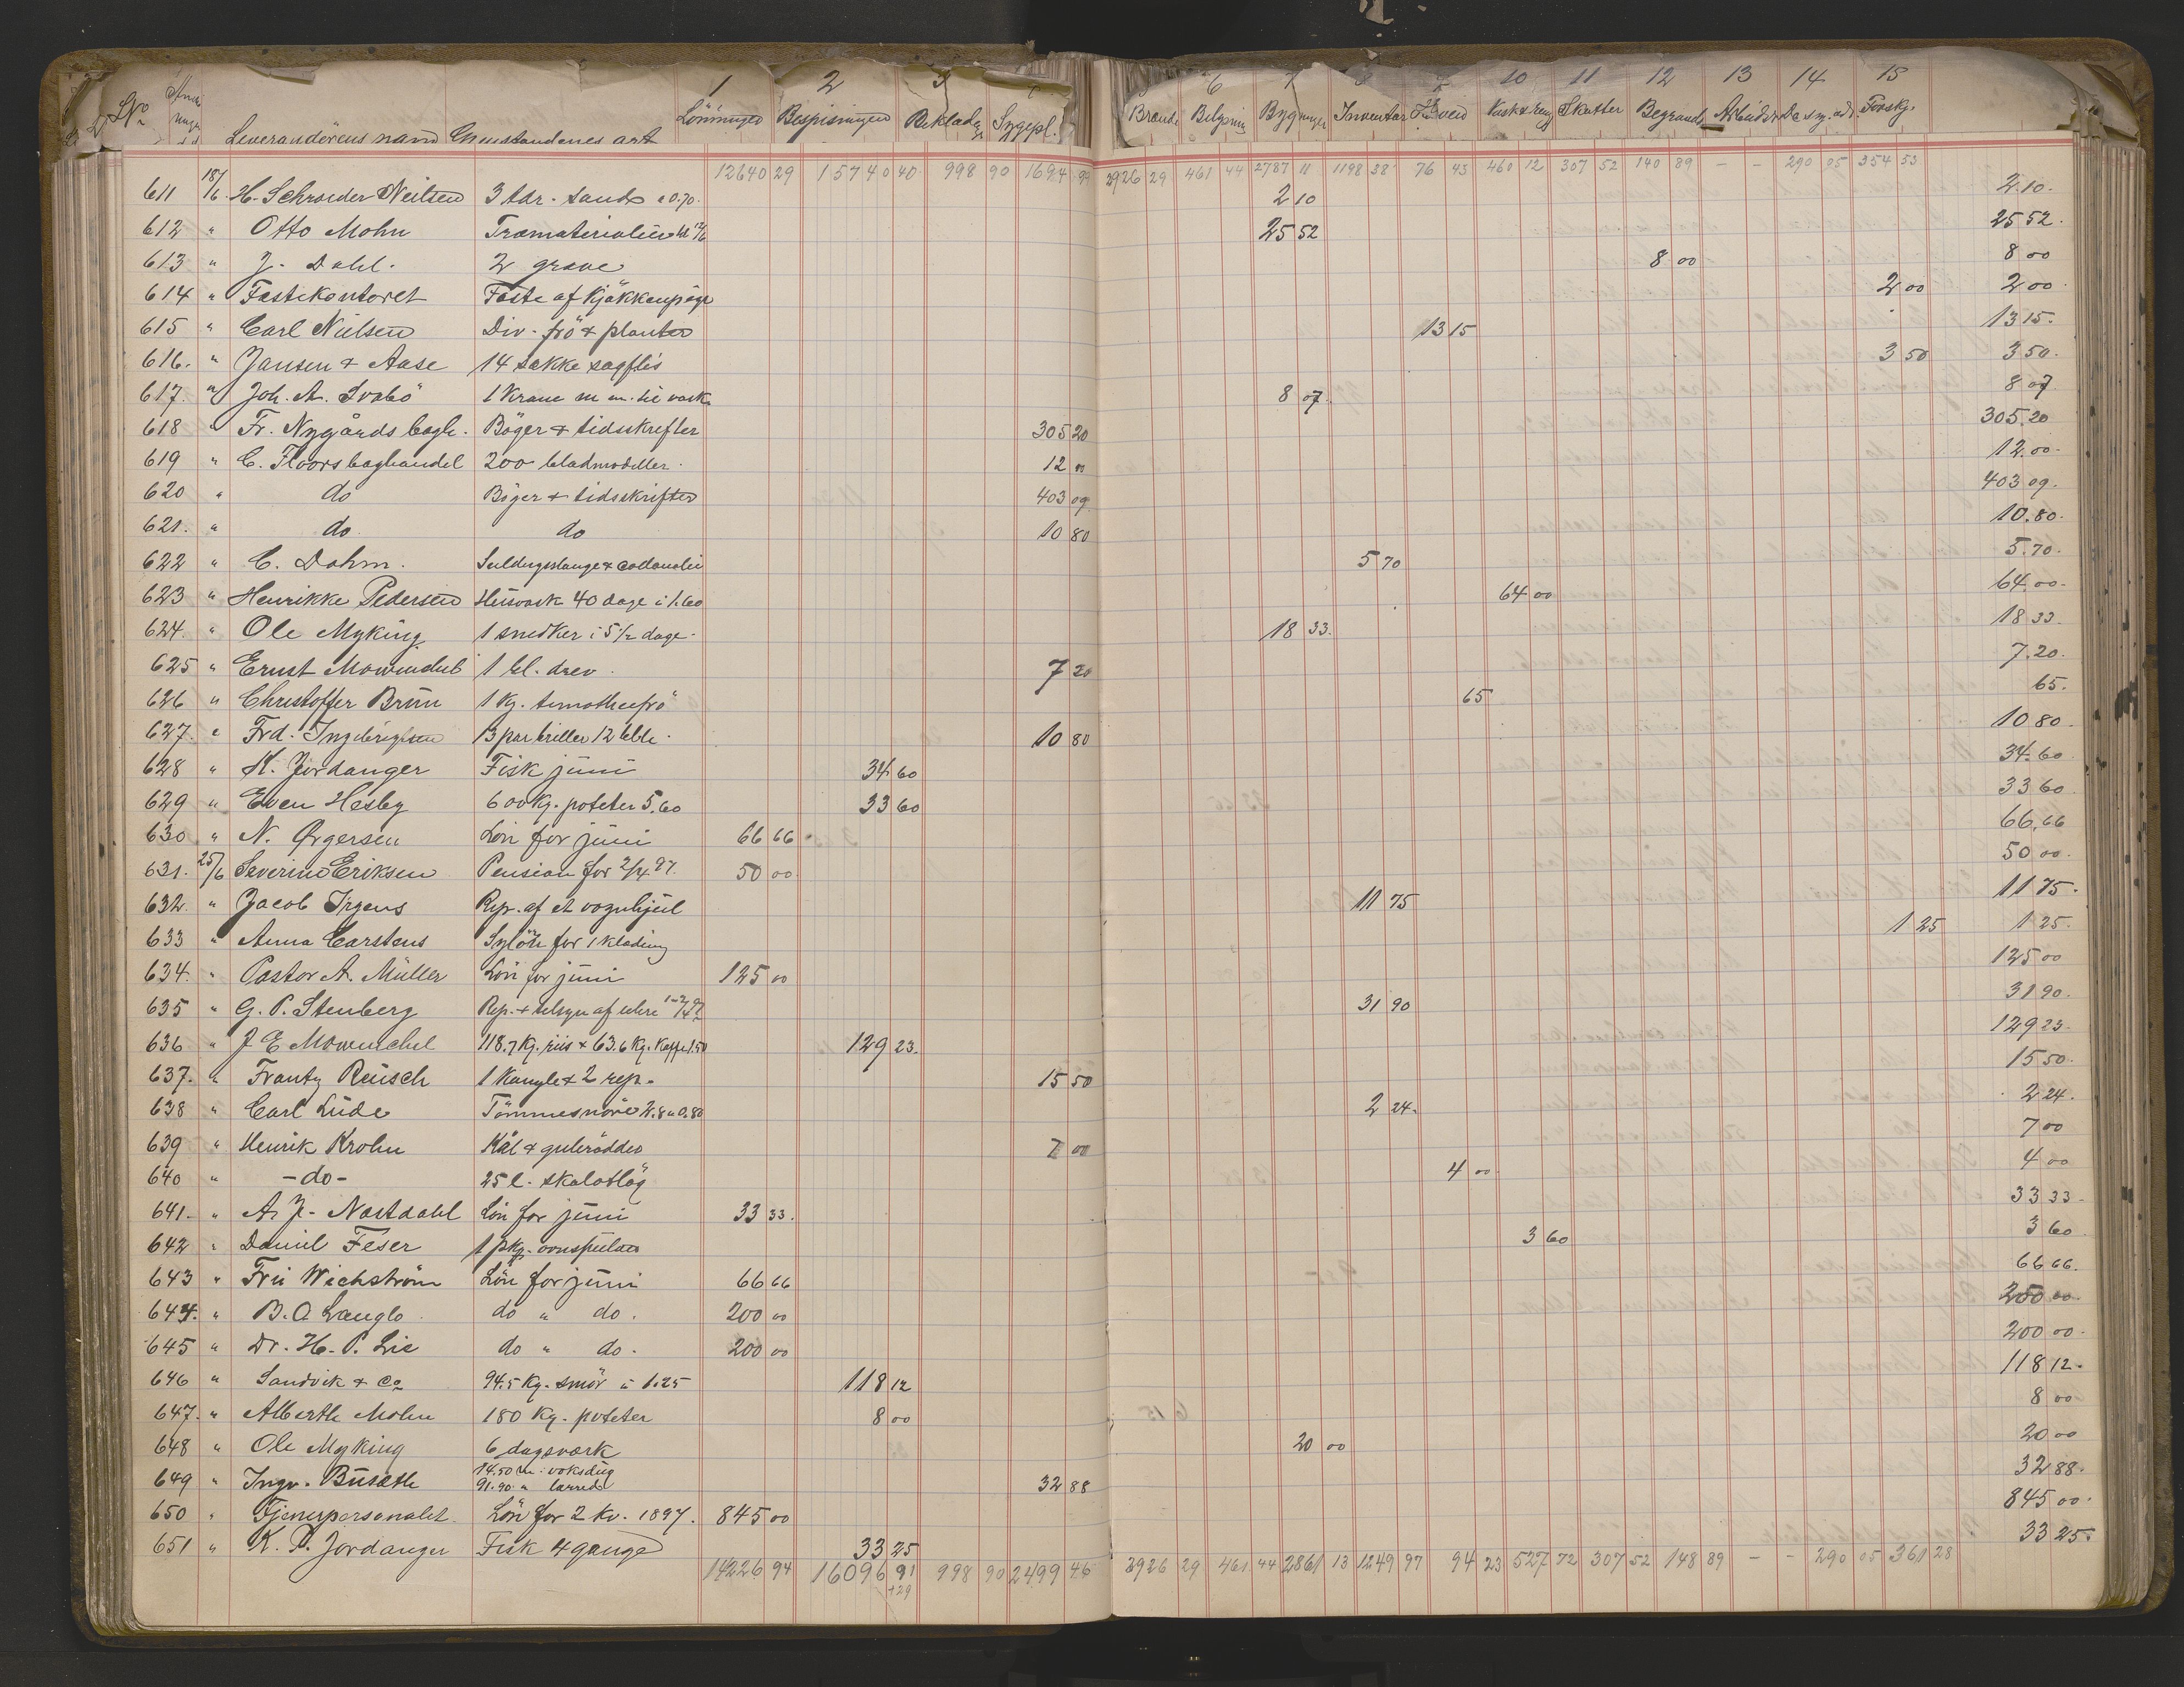 1 2 3 6 7 8 9 10 11 12 13 14 15
No Leverandörens navn Gjenstandenes art Lönninger Bespisningen Beklædn Sygepl. Brænde Belysnin Bygninger Inventar Vask & reng Skatter Begravels Forskj.
12640 29 15740 40 998 90 1694 99 2926 29 461 44 2787 11 1198 38 76 43 460 12 307 52 140 89 - - 290 05 354 53
611 18/6 H. Schrøeder Neilsen 3 tdr. sand a 0.70 2 10 2.10
612 " Otto Mohn Træmaterialier 25 52 25 52
613 " J. Dahl. 2 grave 8 00 8 00
614 " Festekontoret Feste af Kjökken 2 00 2 00
615 " Carl Nielsen Div. frö & planter 13 15 13 15
616. " Jansen & Aase 14 sække sagflis 3 50 3 50
617. " Joh. A. Svabö 1 Krane m m. til vask 8 07 8 07
618 " Fr. Nygårds bogh. Böger & tidsskrifter 305 20 305.20
619 " C. Floors boghandel 200 bladmodeller 12 00 12.00
620 " do Böger & tidsskrifter 403 09 403 09
621. " do do 10 80 10.80
622 " C. Dahm. 5 70 5.70
623 " Henrikke Pedersen Husvask 40 dage à 1.60 64 00 64.00
624. " Ole Myking 1 snedker i 5 1/2 dage 18 33 18 33
625 " Ernst Mowinckel 1 bl. drev 7 20 7.20
626 " Christoffer Brun 1 Kg. timotheifrö 65 65
627. " Frd. Ingebrigtsen 3 par briller 12 10 80 10 80
628 " K. Jordanger Fisk juni 34 60 34.60
629 " Even Hesby 600 Kg. poteter 5.60 33 60 33 60
630 " N. Ørgersen Lön for juni 66 66 66.66
631. 25/6 Severine Eriksen Pension for 2/4 97. 50 00 50 00
632. " Jacob Irgens Rep. af et vognhjul 11 75 11 75
633 " Anna Carstens Sylön for 1 klædning 1 25 1 25
634. " Pastor A. Müller Lön for juni 125 00 125 00
635 " G. P. Stenberg Rep. & tilsyn af uhre 1-2/4 97 31 90 31 90
636 " J E Mowinckel 118.7 Kg. riis & 63.6 Kg. Kaffe 1.50 129 23 129 23
637. " Frantz Reusch 1 Kanyle & 2 rep. 15 50 15 50
638 " Carl Lüde Tömmesnöre 2.8 a 0.80 2 24 2 24
639 " Henrik Krohn Kål & gulerödder 7 00 7 00
640 " - do - 25 l. skalotlög 4 00 4 00
641. " A. J. Nastdahl Lön for juni 33 33 33 33
642 " Daniel Feser 1 pkg. 3 60 3 60
643 " Fru Wichström Lön for juni 66 66 66 66
644. " B. A Langlo do " do. 200 00 200 00
645 " Dr. H. P. Lie do " do. 200 00 200 00
646 " Sandvik & Co 94.5 Kg. smör à 1.25 118 12 118 12
647. " Alberth Mohn 180 Kg. poteter 8 00 8 00
648 " Ole Myking 6 dagsværk 20 00 20 00
649 " Ingv. Buseth 14.50 m. voksdug
91.90 " lærred 32 88 32 88
650 " Tjenerpersonalet. Lön for 2 Kv. 1897. 845 00 845 00
651 " K. P. Jordanger Fisk 4 gange 33 25 33 25
14226 94 16096 91 998 90 2499 46 2926 29 461 44 2861 13 1249 97 94 23 527 72 307 52 148 89 - - 290 05 361 28
+29